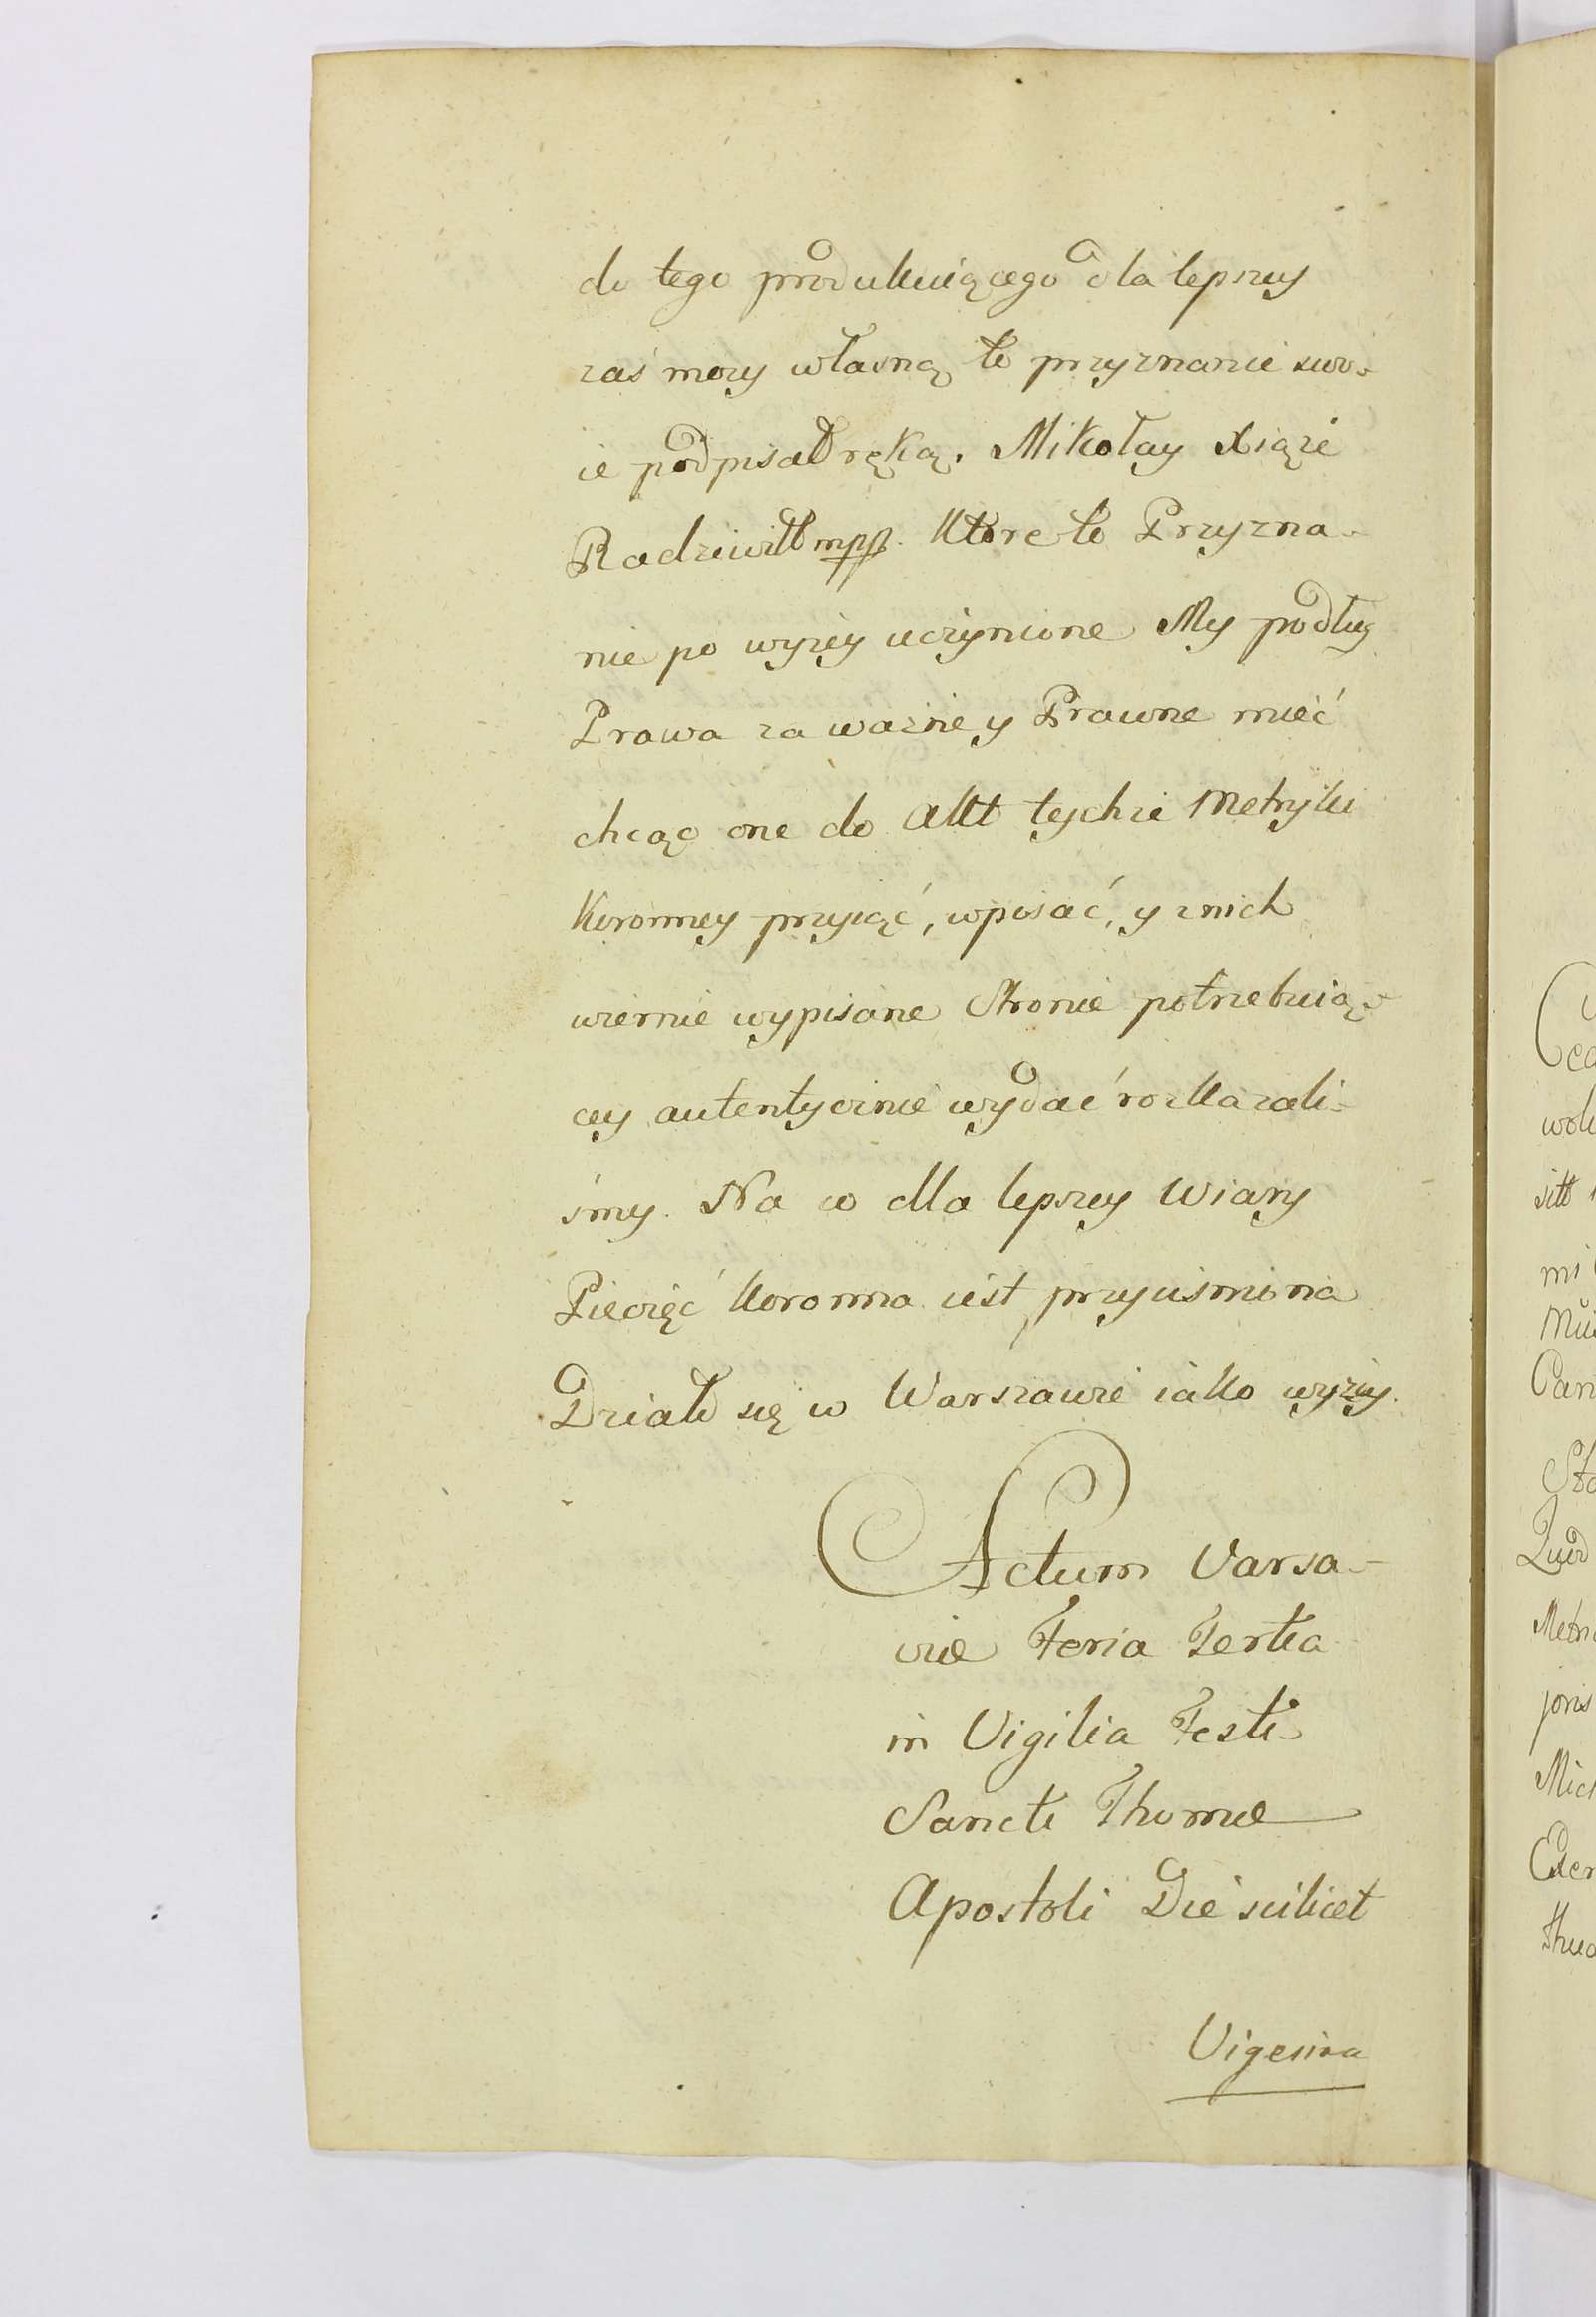 do tego produkuiącego dla lepszey
zaś mocy własną to przyznanie swo-
ie podpisał ręką. Mikołay Xiąże
Radziwiłł mpp. Które to Przyzna-
nie po wyżey uczynione My podług
Prawa za ważne y Prawne mieć
chcąc one do Akt tychże Metryki
Koronney przyiąć, wpisać, y z nich
wiernie wypisane Stronie potrzebuią-
cey autentycznie wydać rozkazali-
śmy. Na co dla lepszey Wiary
Pieczęć Koronna iest przyciśniona
Działo się w Warszawie iako wyżey.
Actum Varsa-
viæ Feria Tertia
in Vigilia Festi
Sancti Thomæ
Apostoli Die scilicet
Vigesima